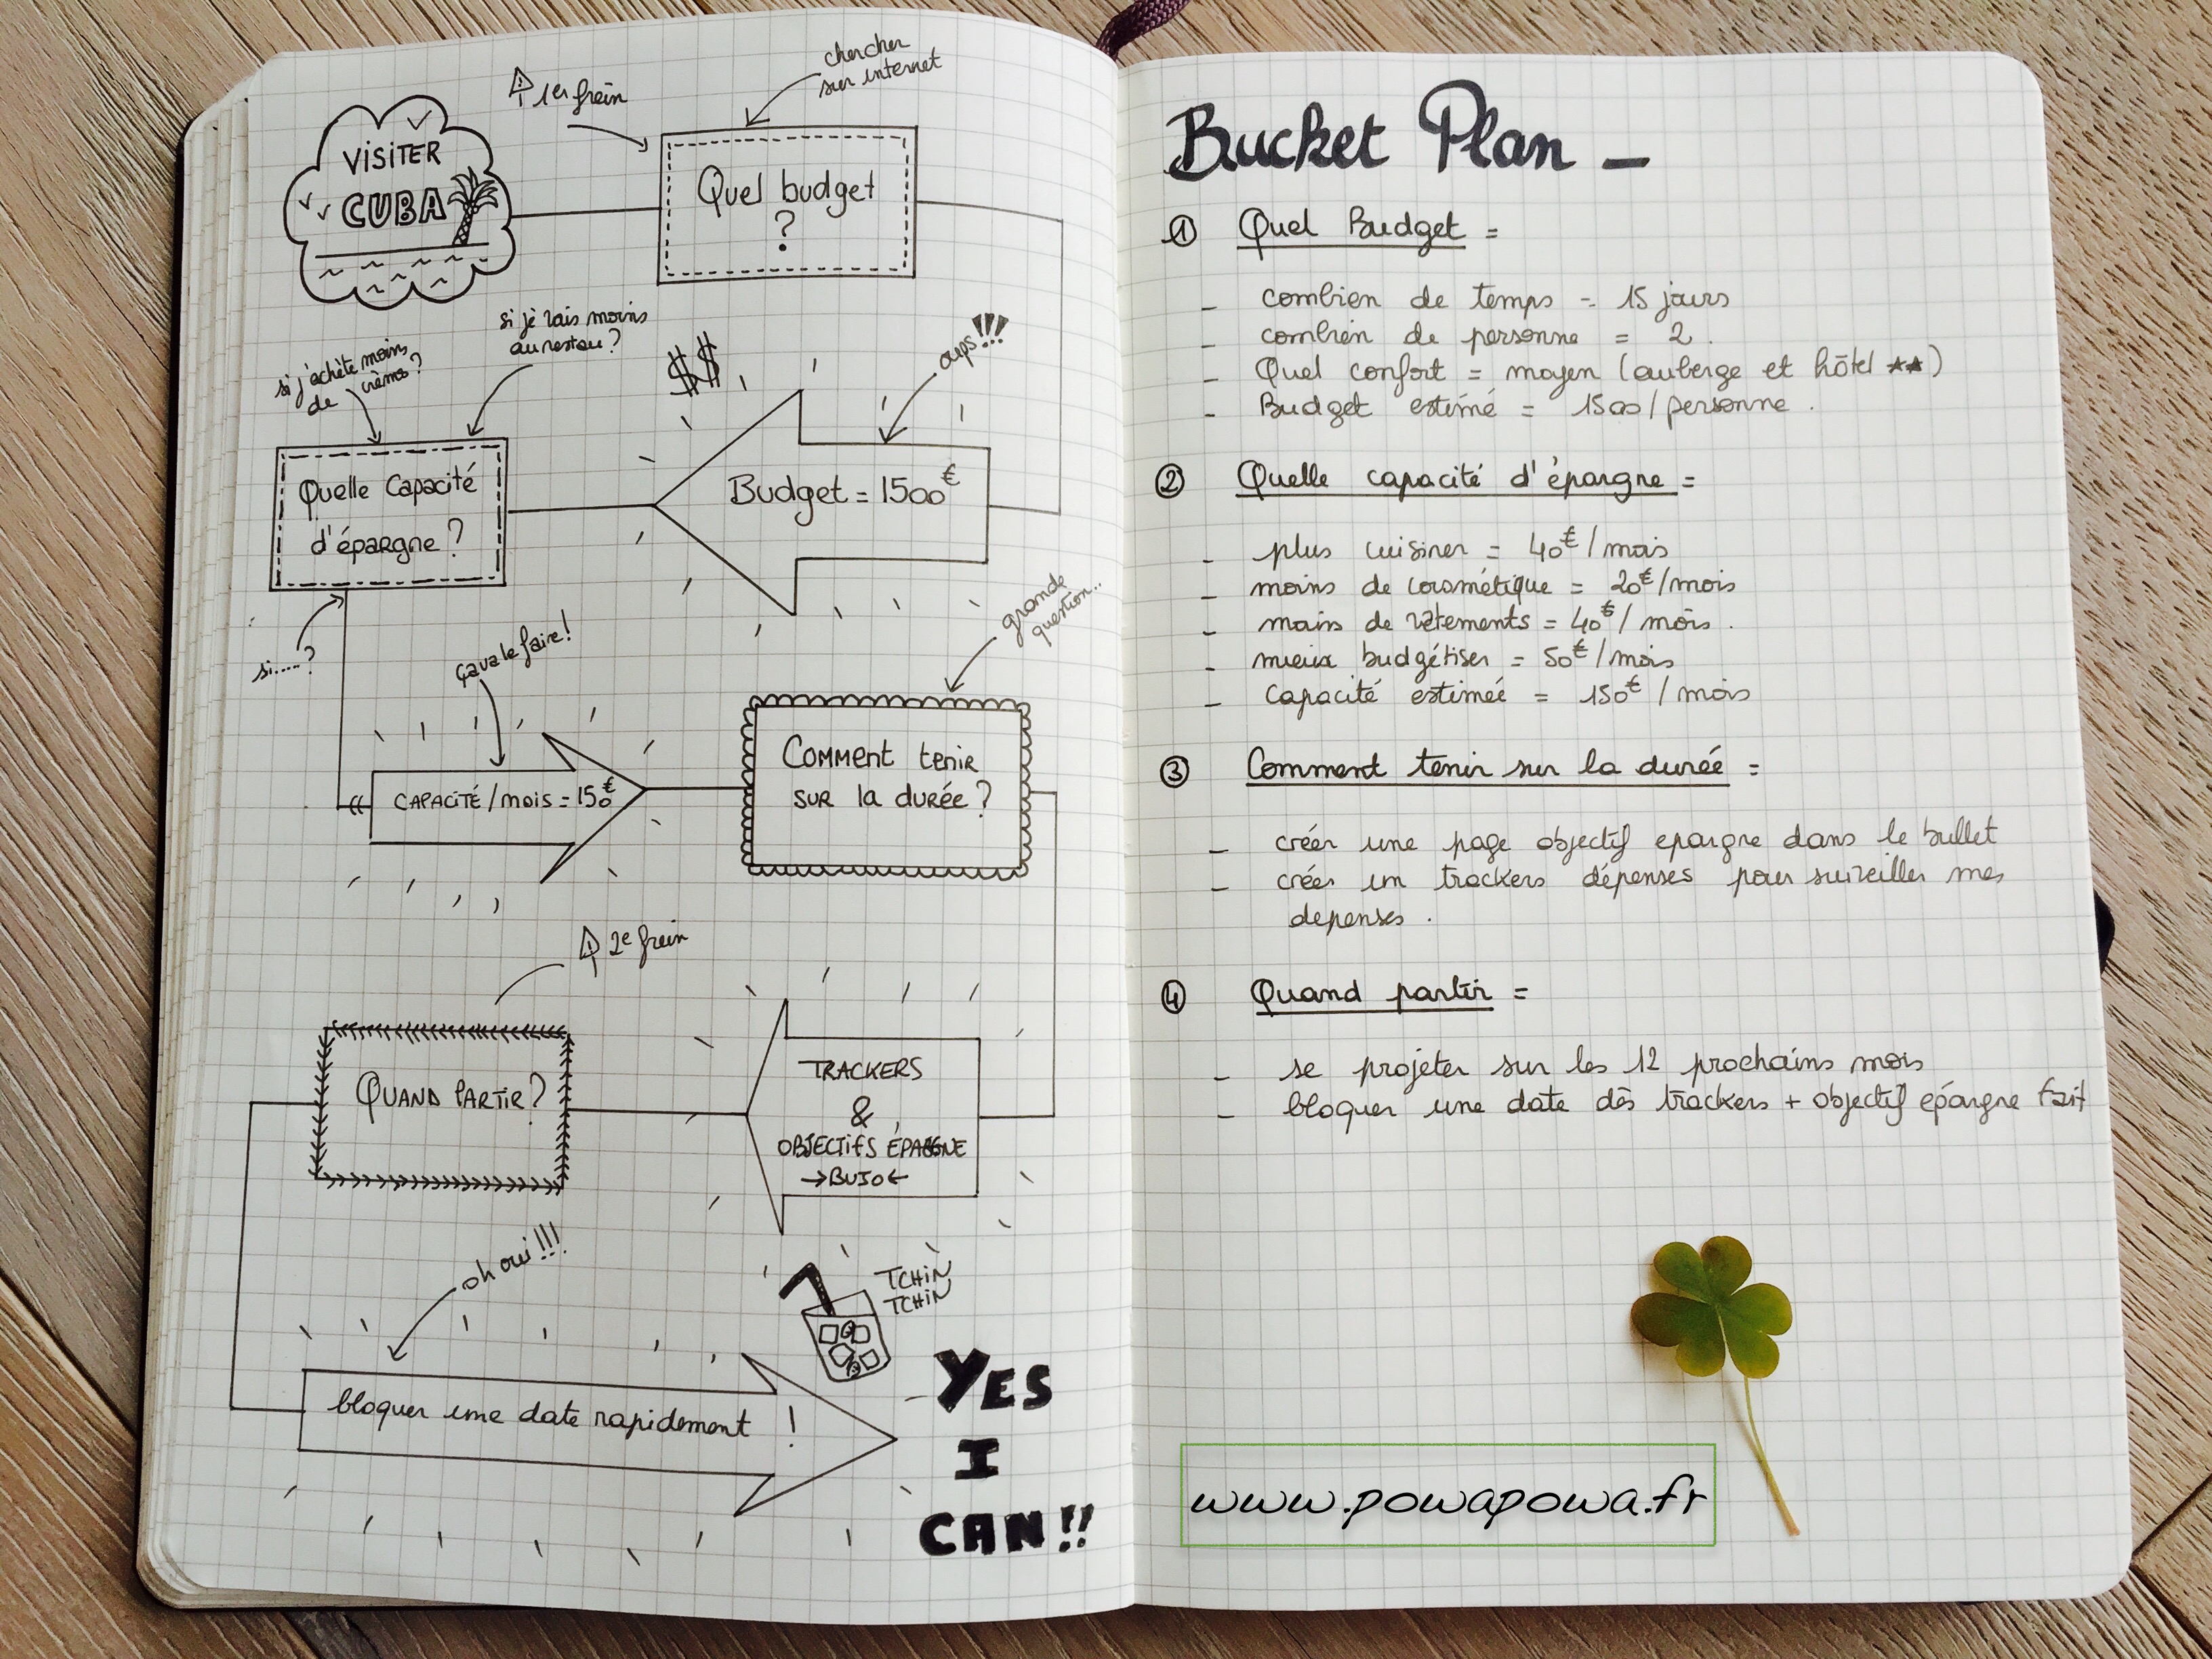 VISITER
CUBA
1er frein
chercher
sur internet
Quel budget
?
si j'achète moins
de crèmes?
si je vais moins
au restau?
$$
oups!!!
Budget = 1500€
Quelle Capacité
d'épargne?
si.....?
ça va le faire!
CAPACITÉ/mois = 150€
grande
question...
Comment tenir
sur la durée?
2e frein
QUAND PARTIR?
TRACKERS
&
OBJECTIFS ÉPARGNE
→BUJO←
oh oui!!!
bloquer une date rapidement !
TCHIN
TCHIN
YES
I
CAN!!
Bucket Plan -
① Quel Budget =
- combien de temps = 15 jours
- combien de personne = 2.
- Quel confort = moyen (auberge et hôtel ★★)
- Budget estimé = 1500/personne.
② Quelle capacité d'épargne =
- plus cuisiner = 40€/mois
- moins de cosmétique = 20€/mois
- moins de vêtements = 40€/mois.
- mieux budgétiser = 50€/mois
- capacité estimée = 150€/mois
③ Comment tenir sur la durée =
- créer une page objectif epargne dans le bullet
- créer un trackers dépenses pour surveiller mes
depenses.
④ Quand partir =
- se projeter sur les 12 prochains mois
- bloquer une date dès trackers + objectif épargne fait
www.powapowa.fr